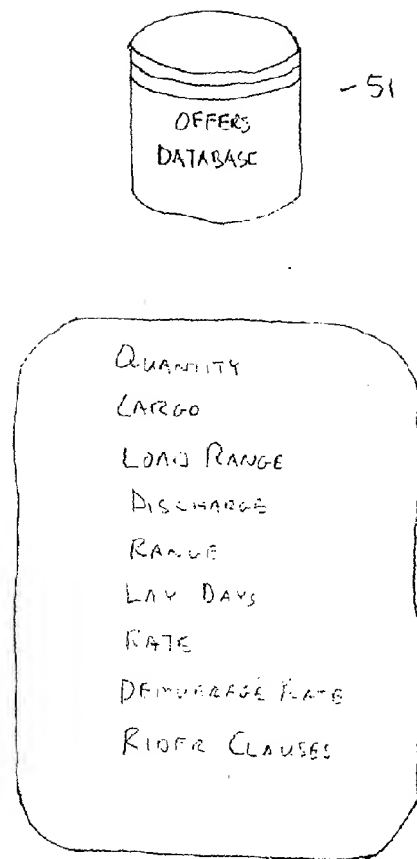 - 51
OFFERS
DATABASE
QUANTITY
CARGO
LOAD RANGE
DISCHARGE
RANGE
LAY DAYS
RATE
DEMURRAGE RATE
RIDER CLAUSES